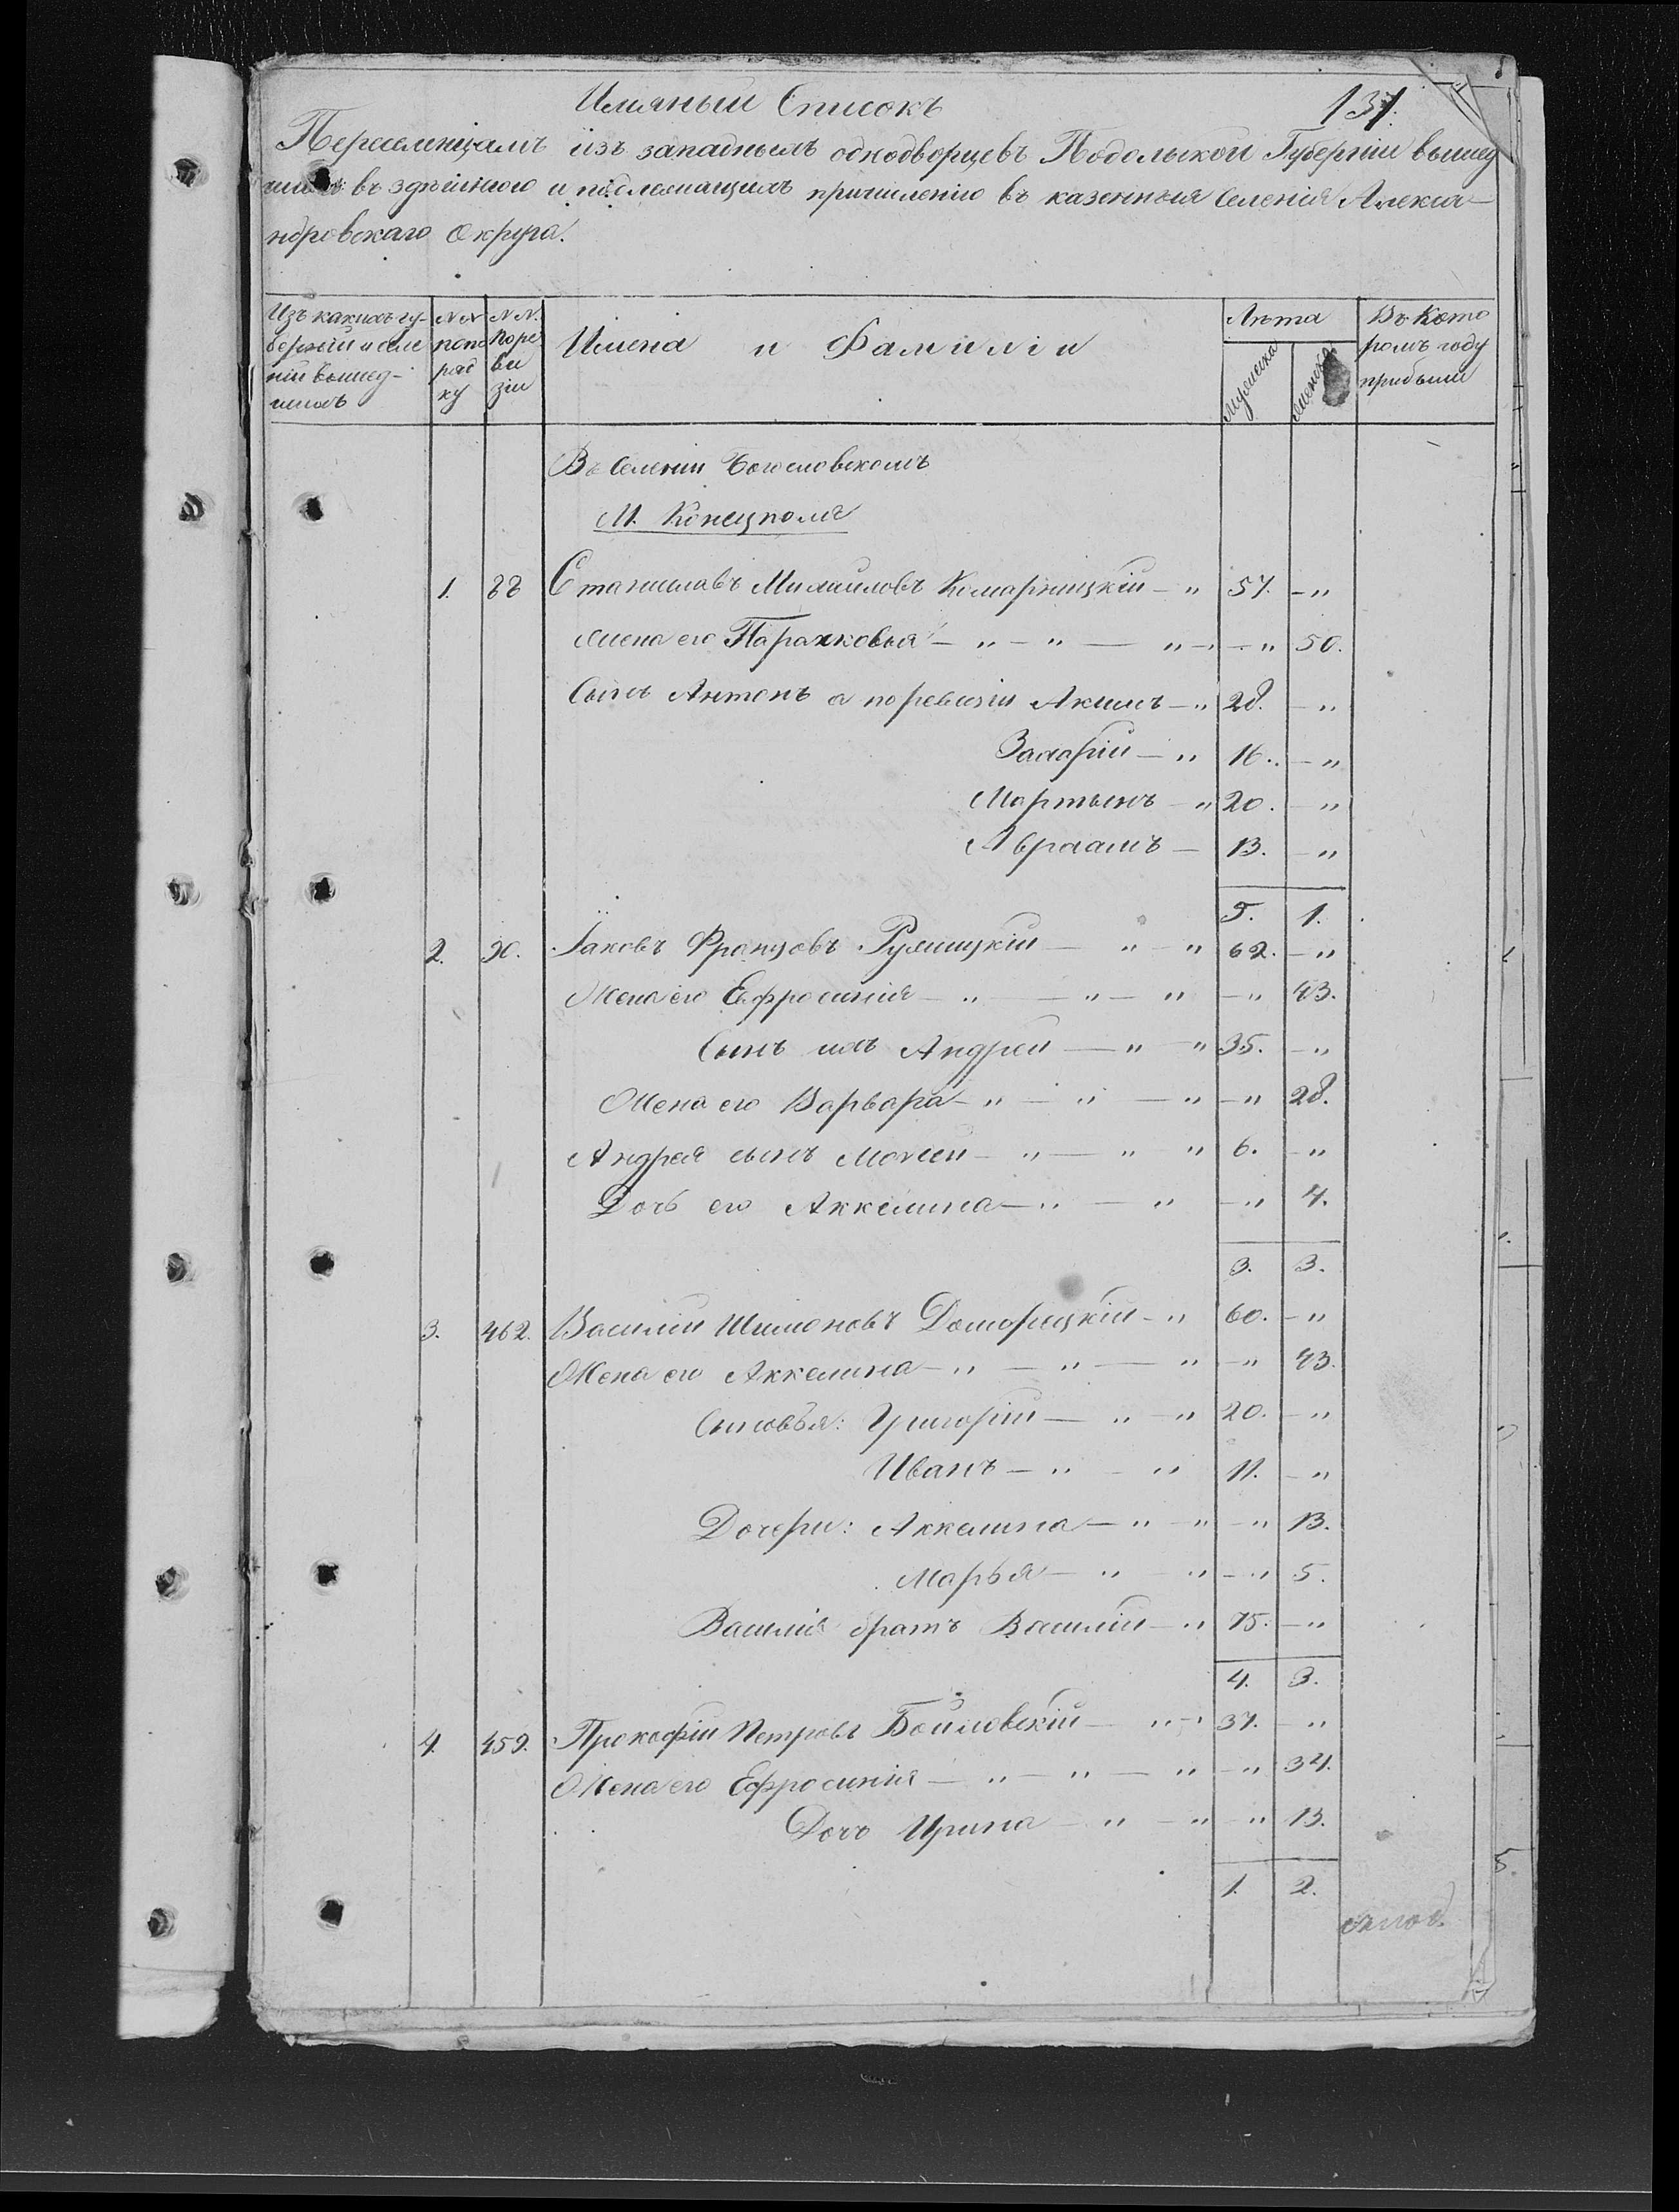 Имяный Списокъ
137.
Переселенцамъ изъ западныхъ однодворцевъ Подольской Губерніи вышед
шихъ въ здѣшнюю и подлежащихъ причисленію въ казенныя Селенія Алекса-
ндровскаго Округа.
Изъ какихъ гу-
берній и селе
ній вышед-
шихъ
NN
попо
ряд
ку
NN.
поре
ви
зіи
Имена и Фамиліи
Лѣта
Мужеска
Женска
Въ Кото
ромъ году
прибыли
Въ Селеніи Богословскомъ
М. Конецполя
1. 88 Станиславъ Михайловъ Комарницкій — " 57. — "
жена его Парасковья — " — " — " — — " 50.
Сынъ Антонъ а поревизіи Акимъ — " 28. — "
Захарій — " 16. — "
Мартынъ — " 20. — "
Авраамъ — 13. — "
5. 1.
2. 90. Іаковъ Францовъ — " — " 62. — "
Жена его Ефросинія — " — " — " — " 43.
Сынъ ихъ Андрей — " — " 35. — "
Жена его Варвара — " — " — " — " 28.
Андрея сынъ — " — " — " 6. — "
Дочь его Аккелина — " — " — " 4.
3. 3.
3. 462. Василій Шимоновъ Доморацкій — " 60. — "
Жена его Аккелина — " — " — " — " 43.
Сыновья: Григорій — " — " 20. — "
Иванъ — " — " 11. — "
Дочери: Аккелина — " — " — " 13.
Марья — " — " — " 5.
Василія братъ Василій — " 15. — "
4. 3.
4. 459. Прокофій Петровъ — " — 37. — "
Жена его Ефросинія — " — " — " — " 34.
Дочь Ирина — " — " — " 13.
1. 2.